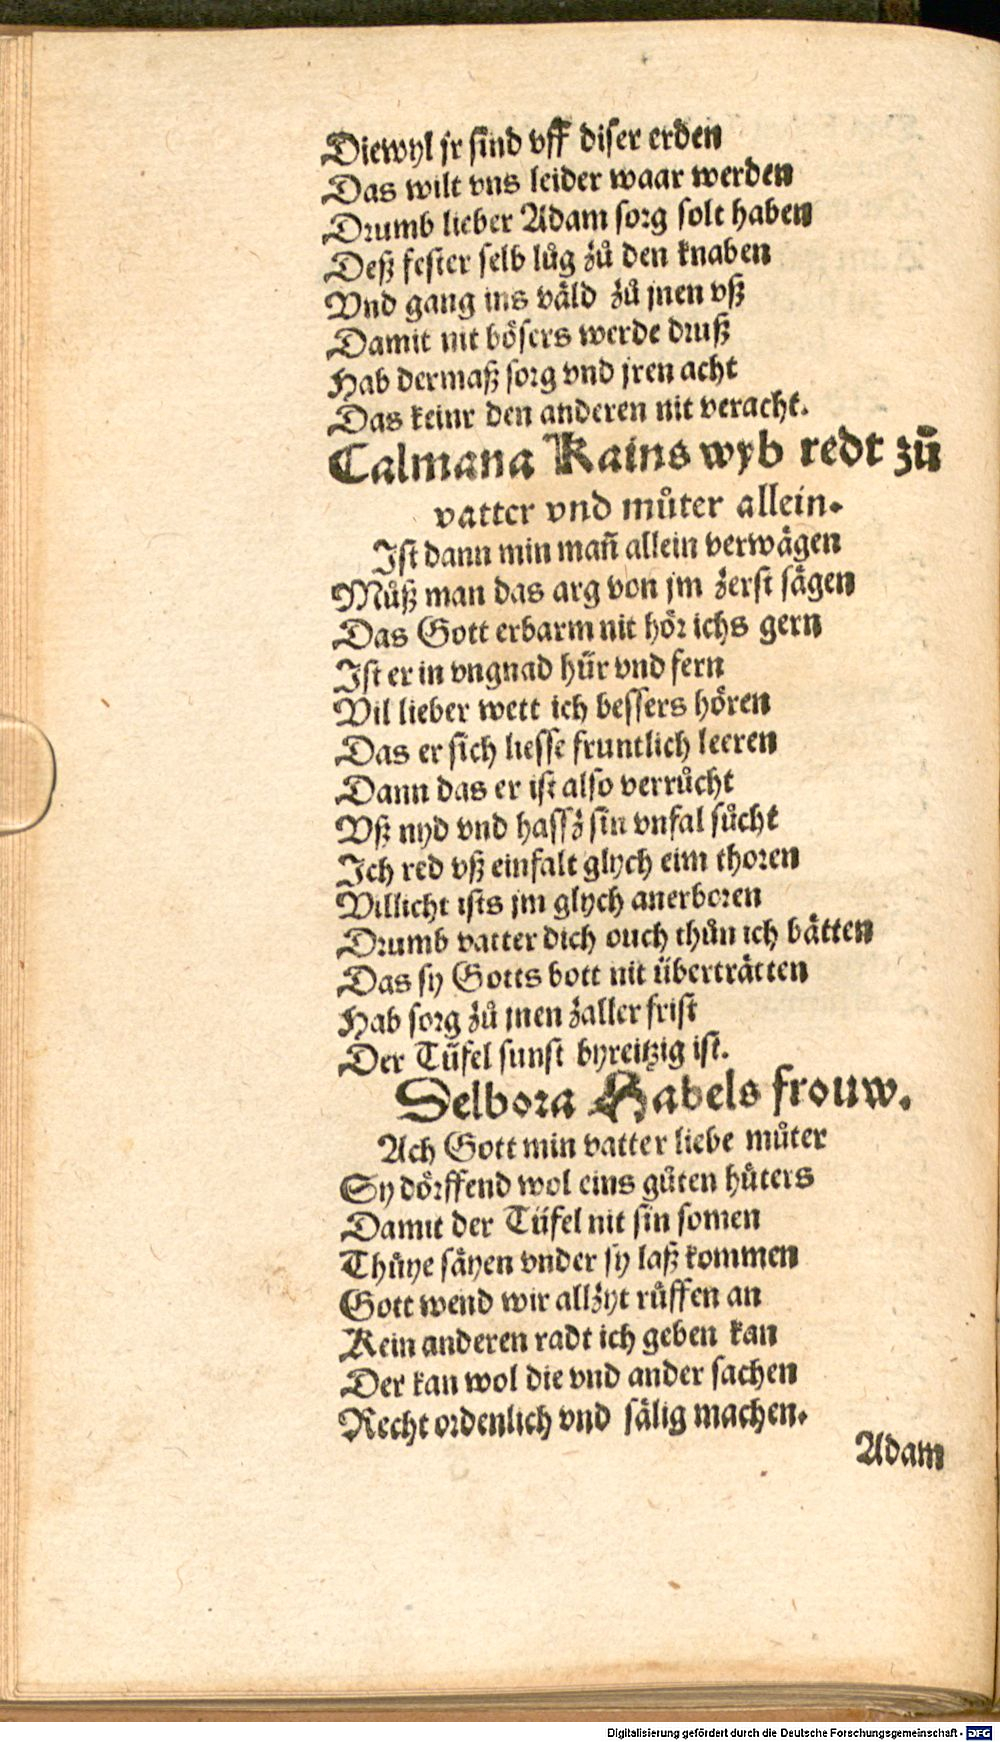 Diewyl jr sind vff diser erden
Das wilt vns leider waar werden
Drumb lieber Adam sorg solt haben
Deß fester selb lůg zů den knaben
Vnd gang ins väld zů jnen vß
Damit nit bösers werde druß
Hab dermaß sorg vnd jren acht
Das keinr den anderen nit veracht.
Calmana Kains wyb redt zů
vatter vnd můter allein.
Ist dann min mañ allein verwägen
Můß man das arg von jm zerst sägen
Das Gott erbarm nit hör ichs gern
Ist er in vngnad hür vnd fern
Vil lieber wett ich bessers hören
Das er sich liesse fruntlich leeren
Dann das er ist also verrůcht
Vß nyd vnd hassz sin vnfal sůcht
Ich red vß einfalt glych eim thoren
Villicht ists jm glych anerboren
Drumb vatter dich ouch thůn ich bätten
Das sy Gotts bott nit überträtten
Hab sorg zů jnen zaller frist
Der Tüfel sunst byreitzig ist.
Delbora Habels frouw.
Ach Gott min vatter liebe můter
Sy dörffend wol eins gůten hůters
Damit der Tüfel nit sin somen
Thůye säyen vnder sy laß kommen
Gott wend wir allzyt růffen an
Kein anderen radt ich geben kan
Der kan wol die vnd ander sachen
Recht ordenlich vnd sälig machen.
Adam
Digitalisierung gefördert durch die Deutsche Forschungsgemeinschaft - DFG